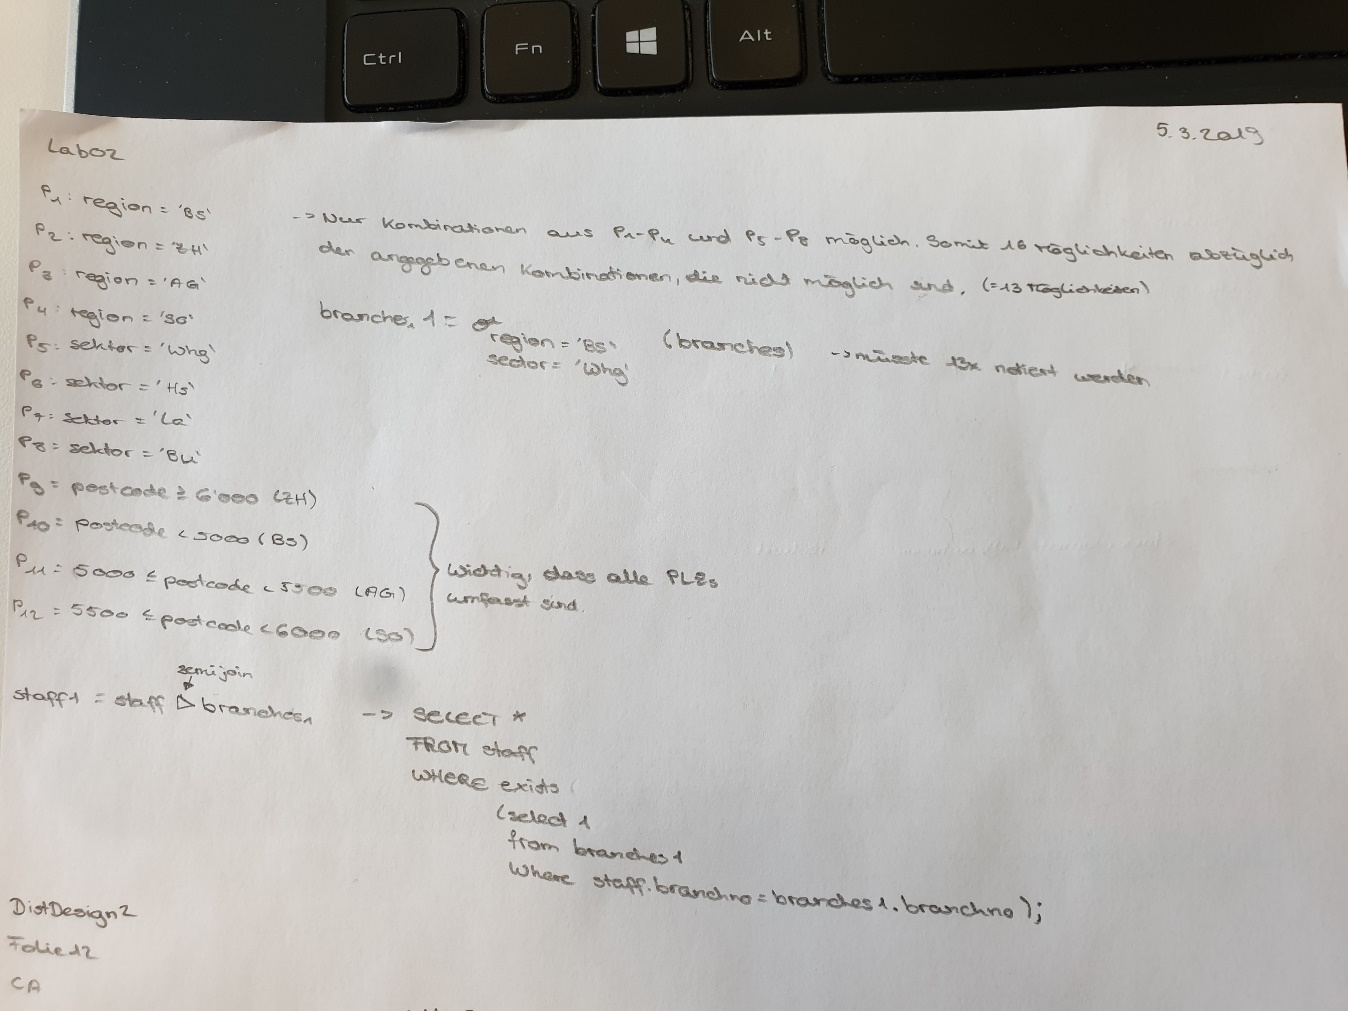 Ctrl
Fn
Alt
5.3.2019
Lab02
P1: region = 'BS'
P2: region = 'ZH'
P3: region = 'AG'
P4: region = 'SO'
P5: sektor = 'Whg'
P6: sektor = 'Hs'
P7: sektor = 'La'
P8 = sektor = 'Bu'
P9 = postcode ≥ 6'000 (ZH)
P10 = postcode < 5000 (BS)
P11 = 5000 ≤ postcode < 5500 (AG)
P12 = 5500 ≤ postcode < 6000 (SO)
-> Nur Kombinationen aus P1-P4 und P5-P8 möglich. Somit 16 Möglichkeiten abzüglich
der angegebenen Kombinationen, die nicht möglich sind. (=13 Möglichkeiten)
branches, 1 =
region = 'BS' (branches) -> müsste 13x notiert werden
sector = 'Whg'
Wichtig, dass alle PLZs
umfasst sind.
semijoin
staff1 = staff ▷ branches1 -> SELECT *
FROM staff
WHERE exists
(select 1
from branches1
Where staff.branchno = branches1.branchno);
DistDesign2
Folie 12
CA